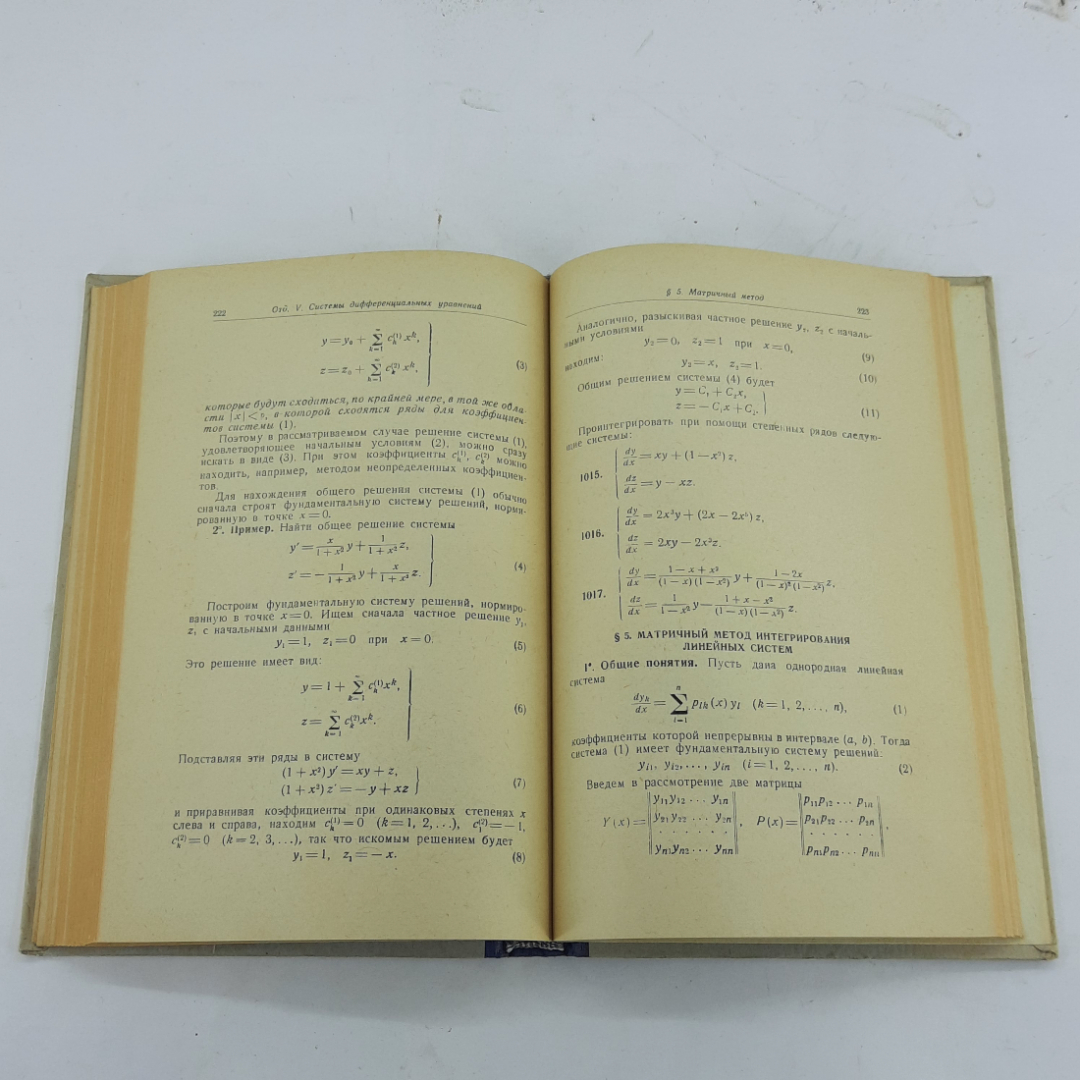 222 Отд. V. Системы дифференциальных уравнений
y = y₀ + ∑_{k=1}^{∞} c_k^{(1)} x^k,
z = z₀ + ∑_{k=1}^{∞} c_k^{(2)} x^k,
(3)
которые будут сходиться, по крайней мере, в той же обла-
сти |x| < ρ, в которой сходятся ряды для коэффициен-
тов системы (1).
Поэтому в рассматриваемом случае решение системы (1),
удовлетворяющее начальным условиям (2), можно сразу
искать в виде (3). При этом коэффициенты c_k^{(1)}, c_k^{(2)} можно
находить, например, методом неопределенных коэффициен-
тов.
Для нахождения общего решения системы (1) обычно
сначала строят фундаментальную систему решений, норми-
рованную в точке x = 0.
2°. Пример. Найти общее решение системы
y' = x/(1+x²) y + 1/(1+x²) z,
z' = − 1/(1+x²) y + x/(1+x²) z.
(4)
Построим фундаментальную систему решений, нормиро-
ванную в точке x = 0. Ищем сначала частное решение y₁,
z₁ с начальными данными
y₁ = 1, z₁ = 0 при x = 0. (5)
Это решение имеет вид:
y = 1 + ∑_{k=1}^{∞} c_k^{(1)} x^k,
z = ∑_{k=1}^{∞} c_k^{(2)} x^k.
(6)
Подставляя эти ряды в систему
(1 + x²) y' = xy + z,
(1 + x²) z' = −y + xz
(7)
и приравнивая коэффициенты при одинаковых степенях x
слева и справа, находим c_k^{(1)} = 0 (k = 1, 2, ...), c_1^{(2)} = −1,
c_k^{(2)} = 0 (k = 2, 3, ...), так что искомым решением будет
y₁ = 1, z₁ = − x. (8)
§ 5. Матричный метод 223
Аналогично, разыскивая частное решение y₂, z₂ с началь-
ными условиями
y₂ = 0, z₂ = 1 при x = 0, (9)
находим:
y₂ = x, z₂ = 1. (10)
Общим решением системы (4) будет
y = C₁ + C₂x,
z = − C₁x + C₂.
(11)
Проинтегрировать при помощи степенных рядов следую-
щие системы:
1015. dy/dx = xy + (1 − x²) z,
dz/dx = y − xz.
1016. dy/dx = 2x³y + (2x − 2x⁵) z,
dz/dx = 2xy − 2x³z.
1017. dy/dx = (1 − x + x²)/((1 − x)(1 − x²)) y + (1 − 2x)/((1 − x)²(1 − x²)) z,
dz/dx = 1/(1 − x²) y − (1 + x − x²)/((1 − x)(1 − x²)) z.
§ 5. МАТРИЧНЫЙ МЕТОД ИНТЕГРИРОВАНИЯ
ЛИНЕЙНЫХ СИСТЕМ
1°. Общие понятия. Пусть дана однородная линейная
система
dy_k/dx = ∑_{l=1}^{n} p_{lk}(x) y_l (k = 1, 2, ..., n), (1)
коэффициенты которой непрерывны в интервале (a, b). Тогда
система (1) имеет фундаментальную систему решений:
y_{i1}, y_{i2}, ..., y_{in} (i = 1, 2, ..., n). (2)
Введем в рассмотрение две матрицы
Y(x) = ‖ y₁₁ y₁₂ ... y₁ₙ ‖, P(x) = ‖ p₁₁ p₁₂ ... p₁ₙ ‖.
y₂₁ y₂₂ ... y₂ₙ p₂₁ p₂₂ ... p₂ₙ
. . . . . . . . . .
yₙ₁ yₙ₂ ... yₙₙ pₙ₁ pₙ₂ ... pₙₙ